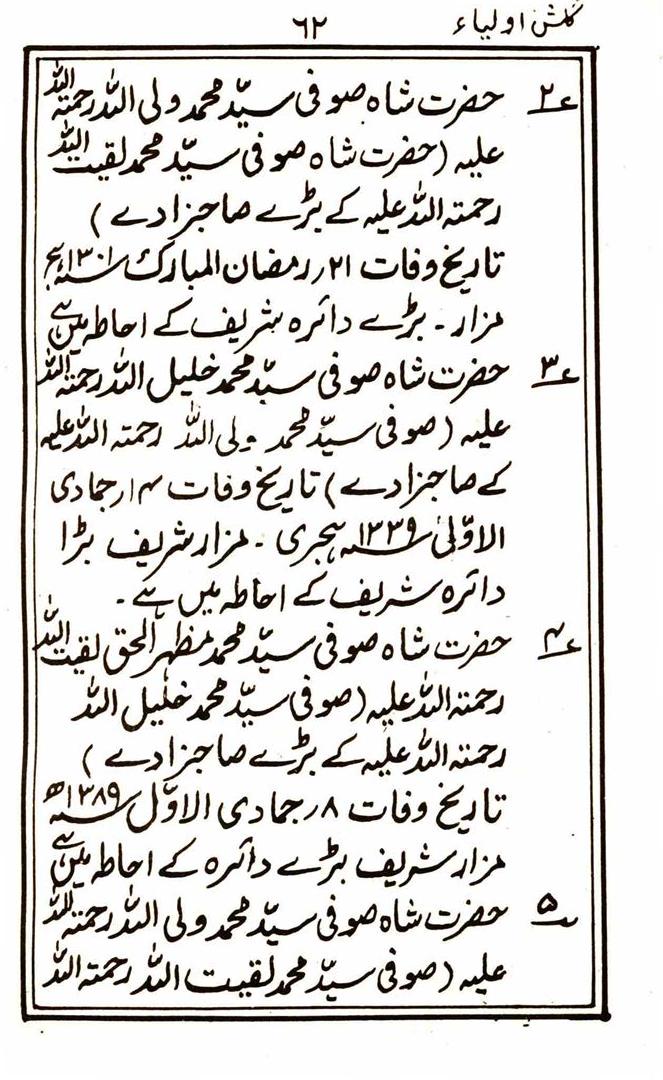 گلشن اولیاء ۶۲
۲ حضرت شاہ صوفی سیّد محمد ولی اللہ رحمتہ اللہ
علیہ (حضرت شاہ صوفی سیّد محمد لقیت اللہ
رحمتہ اللہ علیہ کے بڑے صاحبزادے)
تاریخ وفات ۲۱ رمضان المبارک سنہ ۱۳۰۱ ہج
مزار ۔ بڑے دائرہ شریف کے احاطہ میں ہے
۳ حضرت شاہ صوفی سیّد محمد خلیل اللہ رحمتہ اللہ
علیہ (صوفی سیّد محمد ولی اللہ رحمتہ اللہ علیہ
کے صاحبزادے) تاریخ وفات ۱۴ جمادی
الاوّلیٰ سنہ ۱۳۳۹ ہجری ۔ مزار شریف بڑا
دائرہ شریف کے احاطہ میں ہے ۔
۴ حضرت شاہ صوفی سیّد محمد مظہر الحق لقیت اللہ
رحمتہ اللہ علیہ (صوفی سیّد محمد خلیل اللہ
رحمتہ اللہ علیہ کے بڑے صاحبزادے)
تاریخ وفات ۸ جمادی الاوّل سنہ ۱۳۸۹ھ
مزار شریف بڑے دائرہ کے احاطہ میں ہے
۵ حضرت شاہ صوفی سیّد محمد ولی اللہ رحمتہ اللہ
علیہ (صوفی سیّد محمد لقیت اللہ رحمتہ اللہ